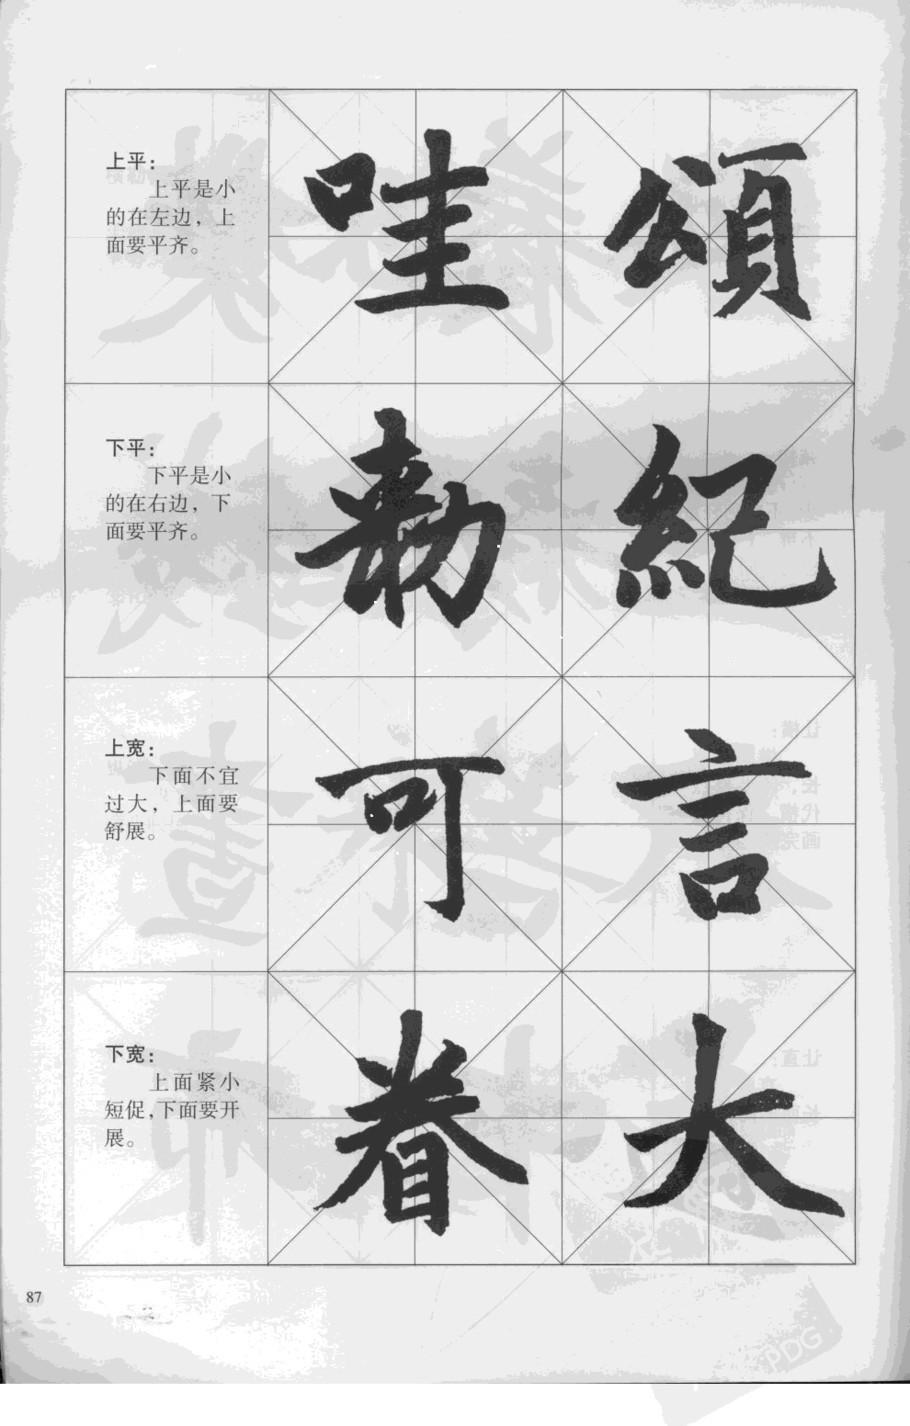 上平：
上平是小
的在左边，上
面要平齐。
哇 頌
下平：
下平是小
的在右边，下
面要平齐。
勑 紀
上宽：
下面不宜
过大，上面要
舒展。
可 言
下宽：
上面紧小
短促，下面要开
展。
眷 大
87
PDG